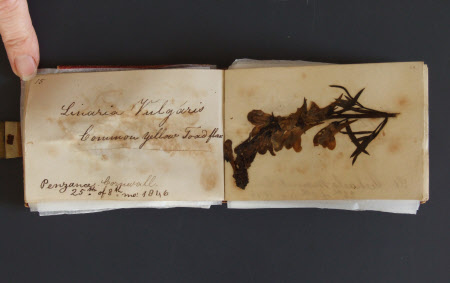 Linaria Vulgaris
Common yellow Toad flax
Penzance, Cornwall.
25th of 8th mo: 1846